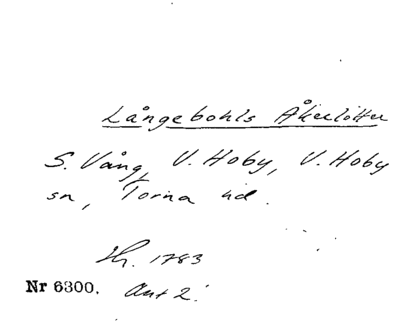 Långebohls Åkerlötter
S. Vång, V. Hoby, V. Hoby
sn, Torna hd.
Sk. 1783
Nr 6300. Akt 2.